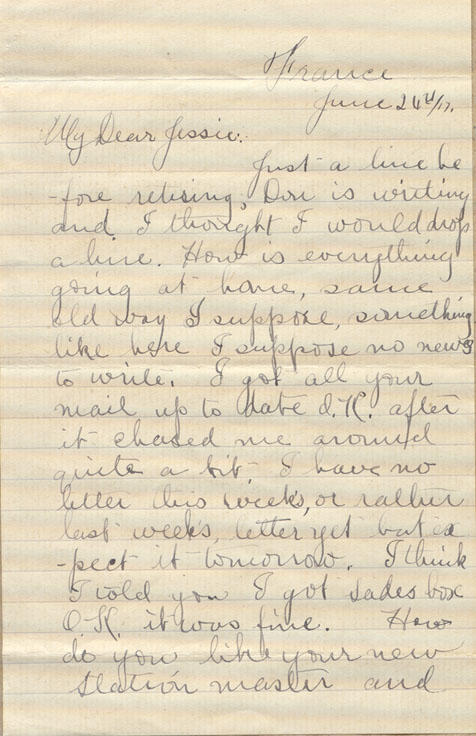 France
June 24th/17.
My Dear Jessie:
Just a line be
-fore retiring, Don is writing
and I thought I would drop
a line. How is everything
going at home, same
old way I suppose, something
like here I suppose no news
to write. I got all your
mail up to date O.K. after
it chased me around
quite a bit. I have no
letter this weeks, or rather
last weeks, letter yet but ex
-pect it tomorrow. I think
I told you I got Sades box
O.K. it was fine. How
do you like your new
station master and